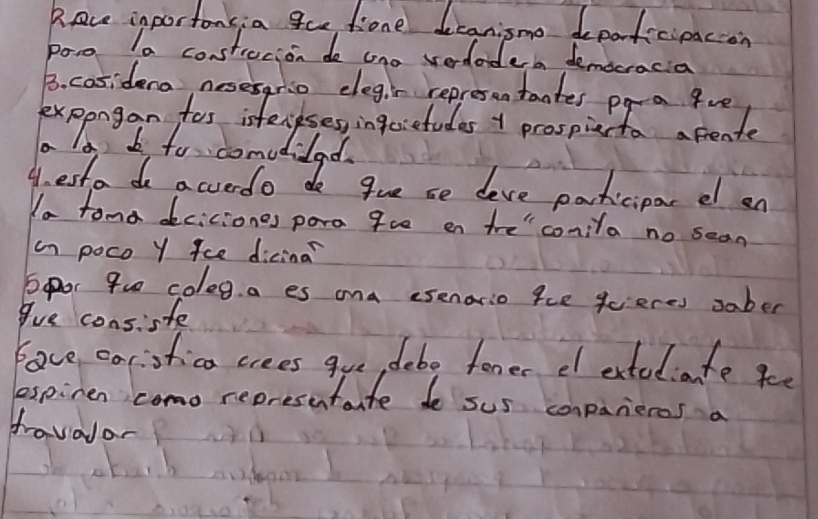 2. Que inportancia que tiene decanismo de participacion
para la constricción de una verdadera democracia
3. cosidera nesesario elegir representantes para que
expongan tus isterpses, inquietudes y prospierta afente
a la de tu comudidad.
4. esta de acuerdo de que se deve participar el en
la toma deciciones para que en tre "comita no sean
un poco y que dicina"
5 por que colegia es una esenario que quieres saber
que consiste
6 que caristica crees que debe tener el extudiante que
espiren como representante de sus conpañeros a
travalar